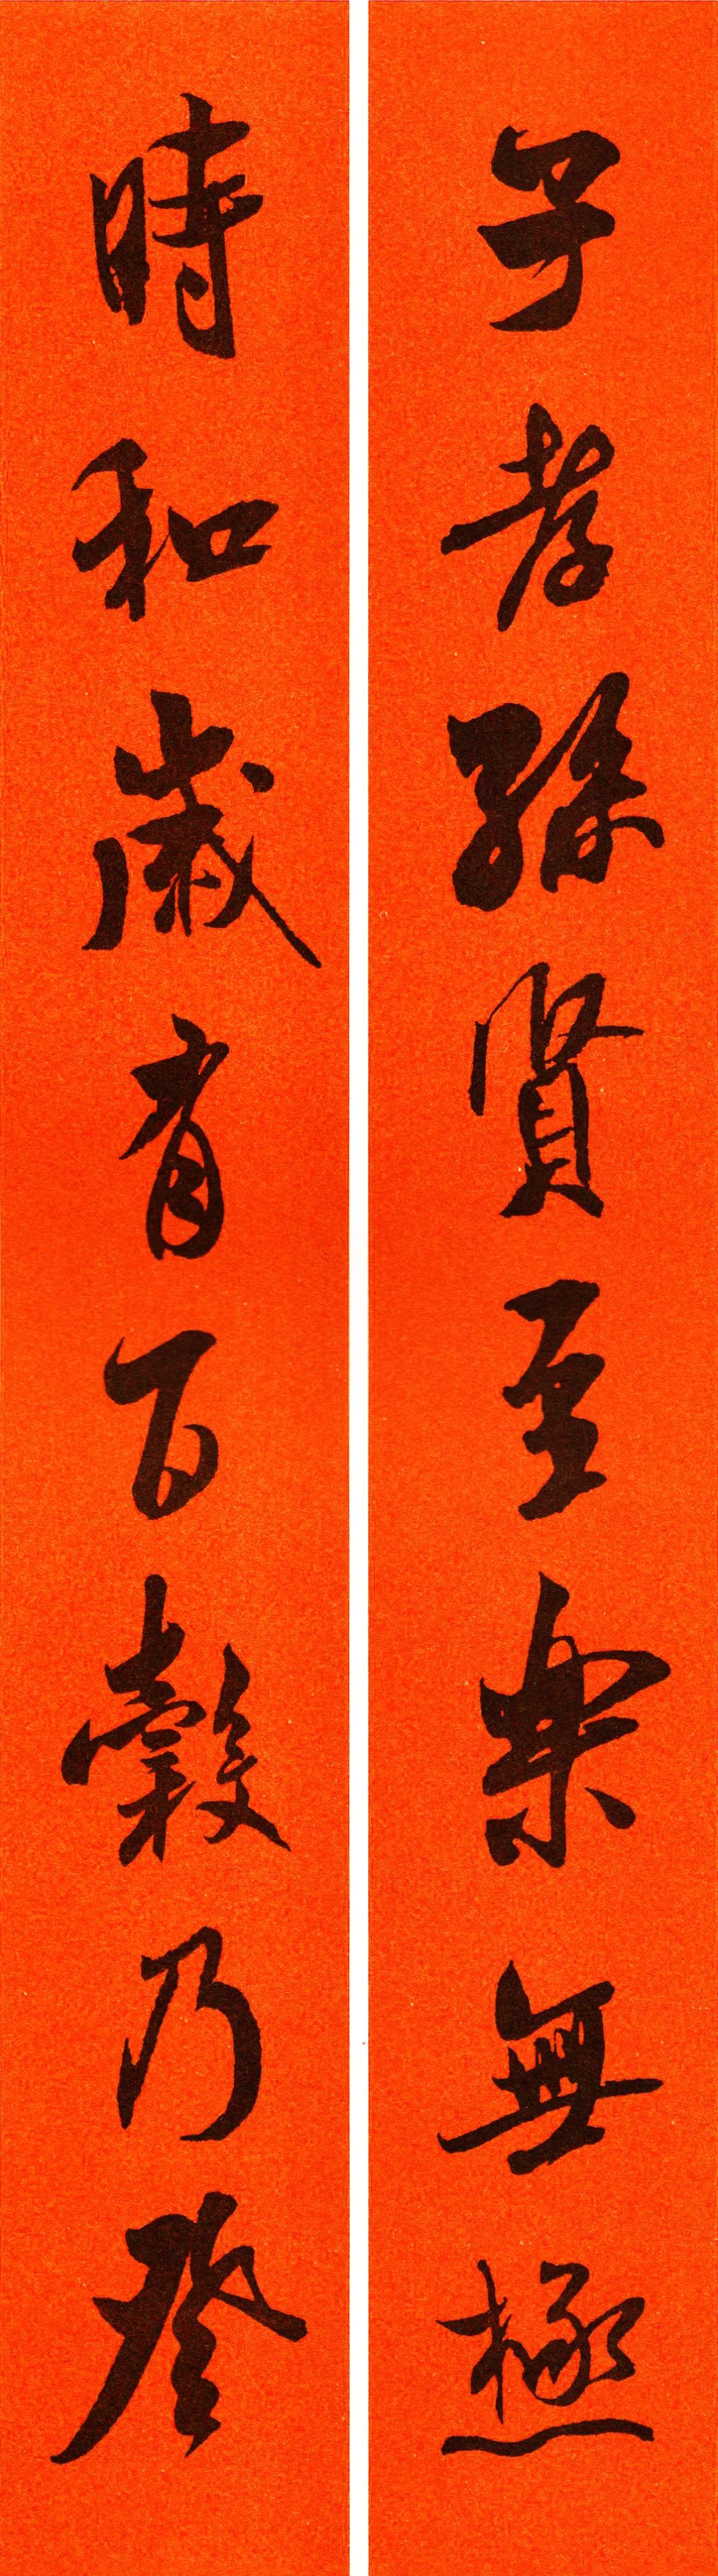 子孝孫賢至樂無極
時和歲有百穀乃登